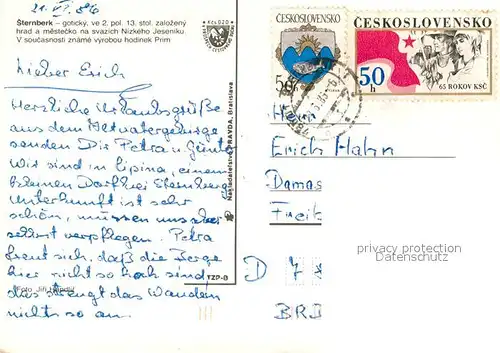 21. VI. 86
Šternberk – gotický, ve 2. pol. 13. stol. založený
hrad a městečko na svazích Nízkého Jeseníku
V současnosti známé výrobou hodinek Prim
Lieber Erich
Herzliche Urlaubsgrüße
aus dem Altvatergebirge
senden Dir Petra u. Günter
Wir sind in Lipina, einem
kleinen Dorf bei Sternberg
Unterkunft ist sehr
schön, müssen uns aber
selbst verpflegen. Petra
freut sich, daß die Berge
hier nicht so hoch sind,
das strengt das Wandern
nicht so an.
Foto Jiří
Nakladatelství PRAVDA, Bratislava
TZP-B
Kčs 0,20
ČESKOSLOVENSKO
50h
ČESKOSLOVENSKO
50
h
65 ROKOV KSČ
Herrn
Erich Hahn
Damas
Freit
D 7
BRD
privacy protection
Datenschutz